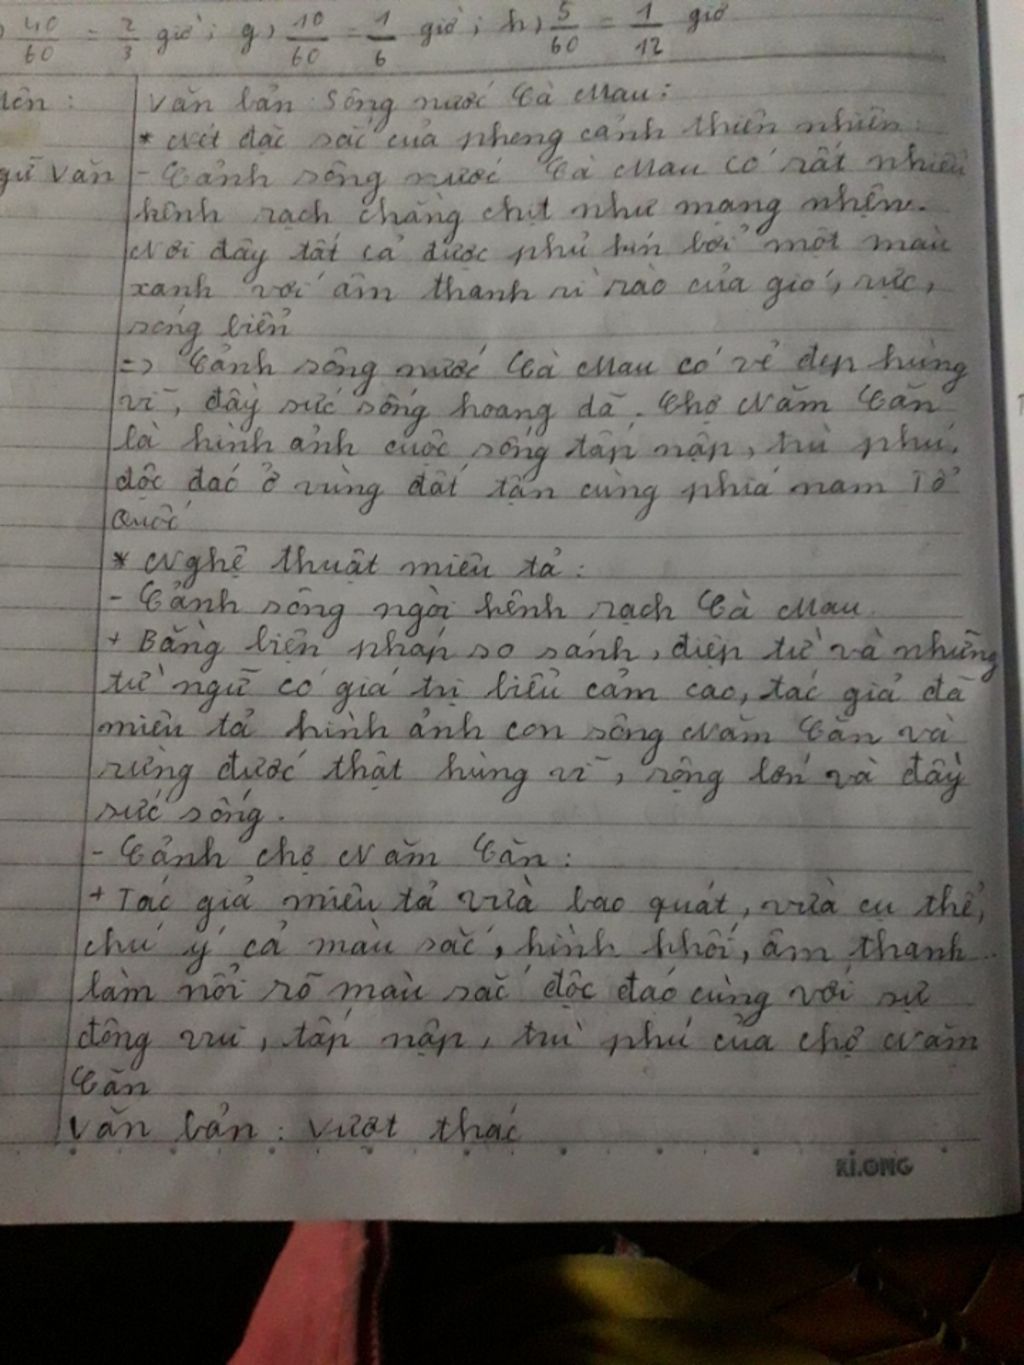 ) 40/60 = 2/3 giờ; g) 10/60 = 1/6 giờ; h) 5/60 = 1/12 giờ
Văn bản: Sông nước Cà Mau:
* Nét đặc sắc của phong cảnh thiên nhiên:
gữ Văn - Cảnh sông nước Cà Mau có rất nhiều
kênh rạch chằng chịt như mạng nhện.
Nơi đây tất cả được phủ kín bởi một màu
xanh với âm thanh rì rào của gió, rực,
sóng biển
=> Cảnh sông nước Cà Mau có vẻ đẹp hùng
vĩ, đầy sức sống hoang dã. Chợ Năm Căn
là hình ảnh cuộc sống tấp nập, trù phú,
độc đáo ở vùng đất tận cùng phía nam Tổ
Quốc
* Nghệ thuật miêu tả:
- Cảnh sông ngòi kênh rạch Cà Mau
+ Bằng biện pháp so sánh, điệp từ và những
từ ngữ có giá trị biểu cảm cao, tác giả đã
miêu tả hình ảnh con sông Năm Căn và
rừng đước thật hùng vĩ, rộng lớn và đầy
sức sống.
- Cảnh chợ Năm Căn:
+ Tác giả miêu tả vừa bao quát, vừa cụ thể,
chú ý cả màu sắc, hình khối, âm thanh..
làm nổi rõ màu sắc độc đáo cùng với sự
đông vui, tấp nập, trù phú của chợ Năm
Căn
Văn bản: Vượt thác
KI.ONG